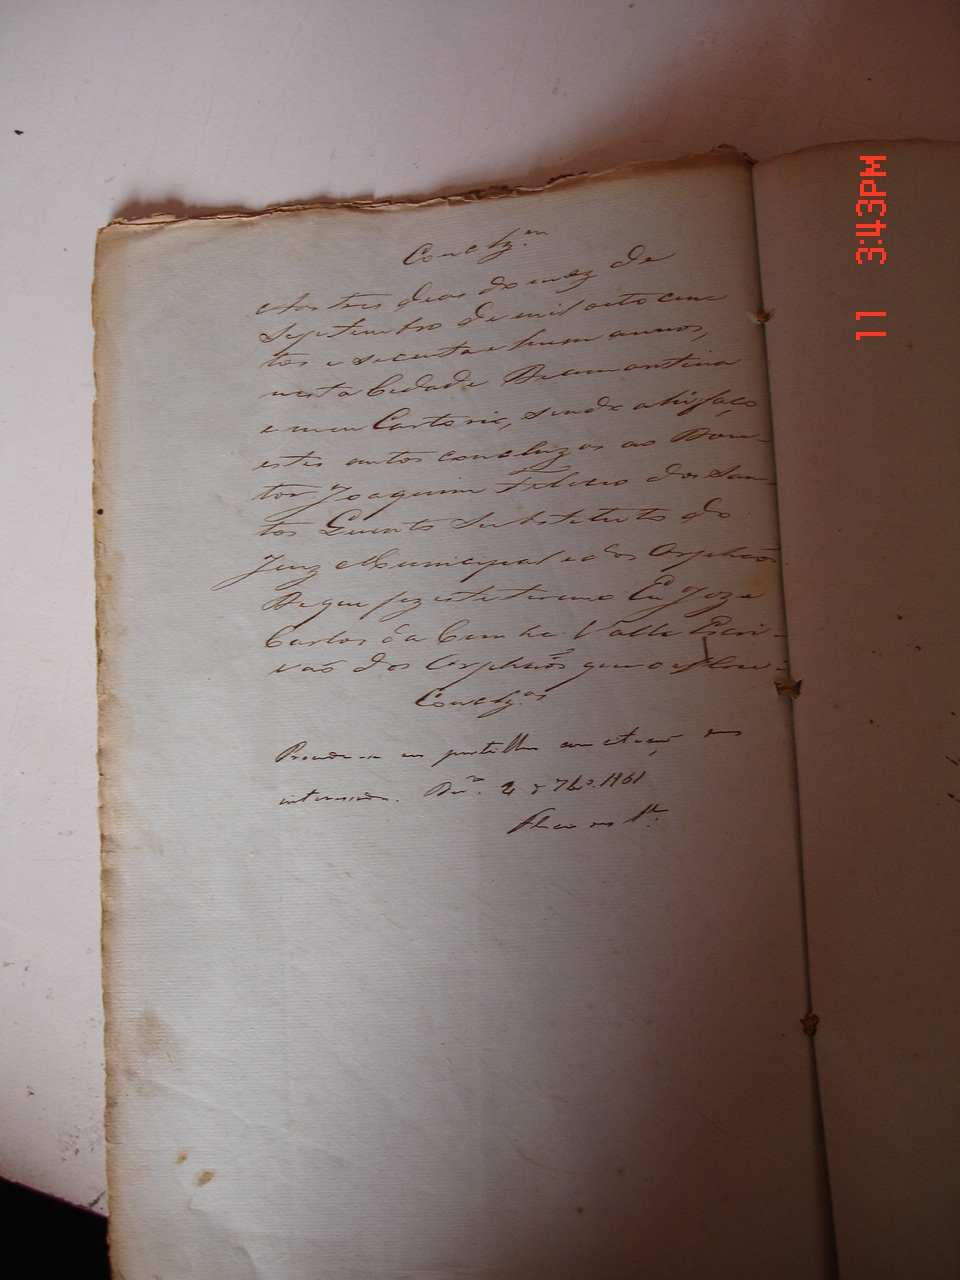 Conclz.am
Aos tres dias do mez de
Septembro de mil oito cen
tos e secenta e hum annos,
nesta Cidade Deamantina
e meu Cartorio, sendo ahi faço
estes autos concluzos ao Dou-
tor Joaquim Felicio dos San-
tos Quinto Substituto do
Juiz Municipal e dos Orphãos
De que fiz este termo Eu Joze
Carlos da Cunha Valle Escri-
vaõ dos Orphãos que o escrevi
Conclz.os
Proceda-se em partilha com citação dos
interessados. Dia.na 4 de 7br.o 1861
11 3:43PM